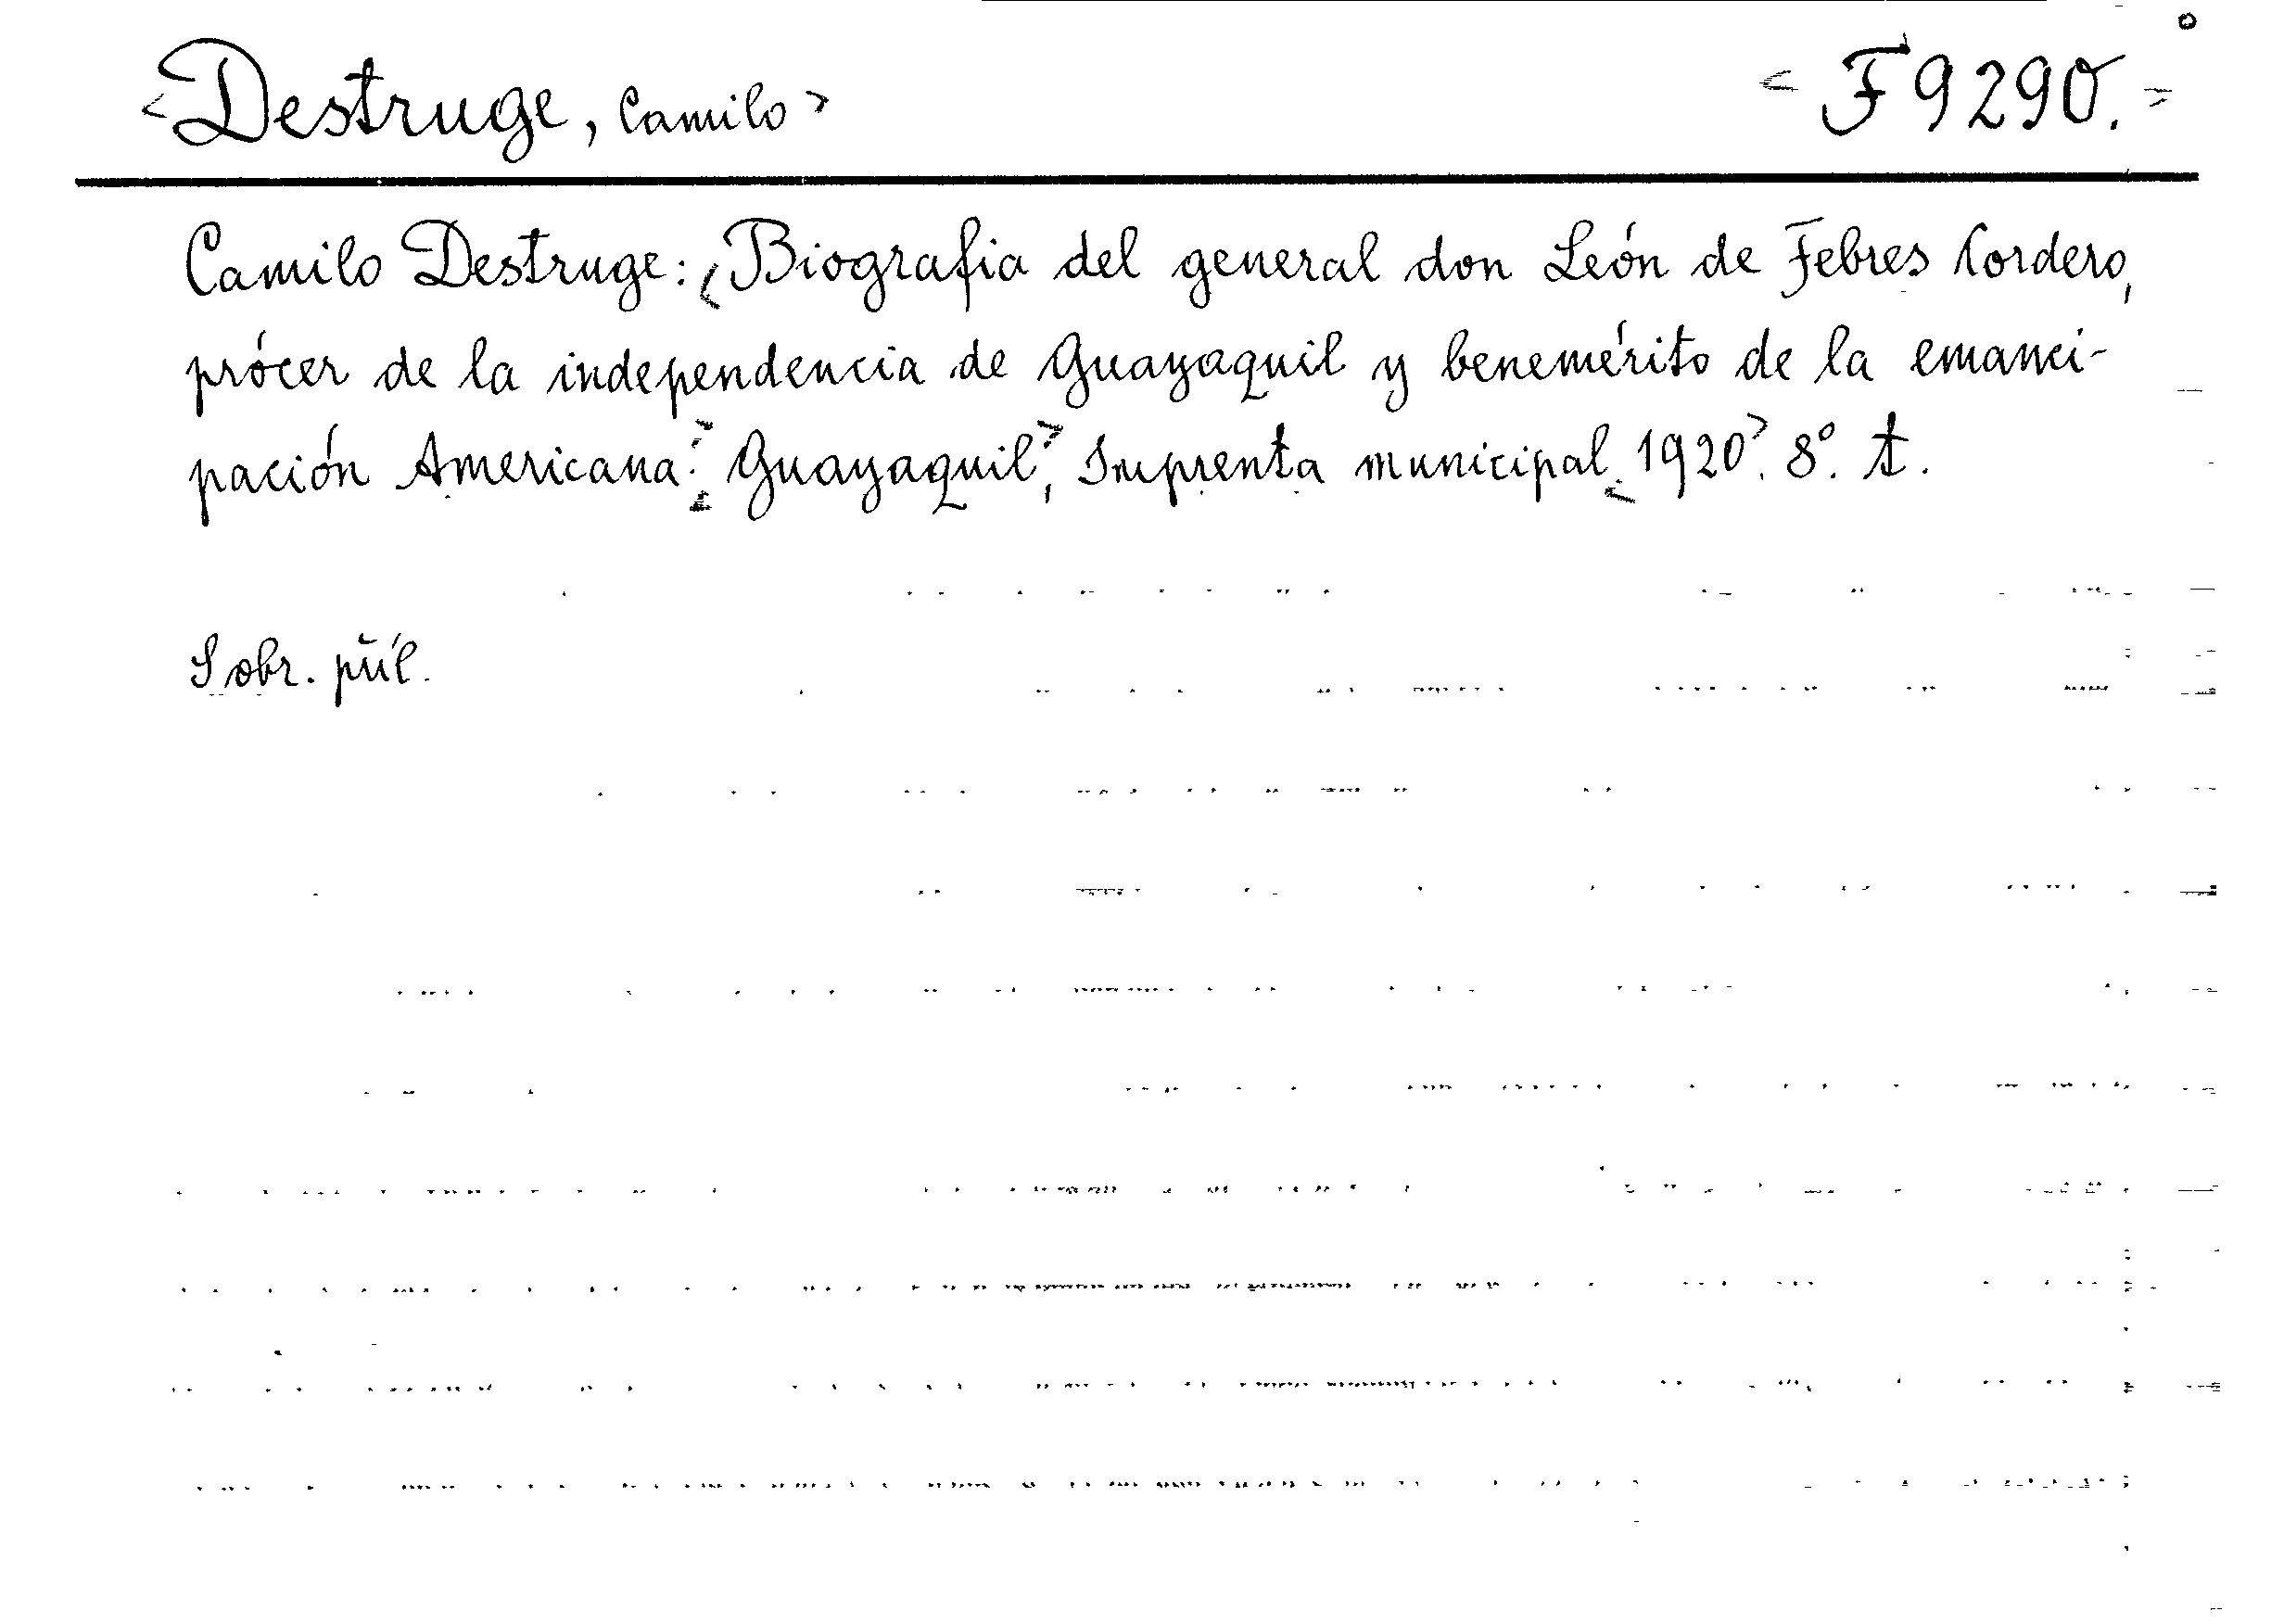 <Destruge, Camilo> <F 9290.>
Camilo Destruge: <Biografia del general don León de Febres Cordero,
prócer de la independencia de Guayaquil y benemérito de la emanci-
pación Americana>. <Guayaquil>, Imprenta municipal. <1920>. 8°. t.